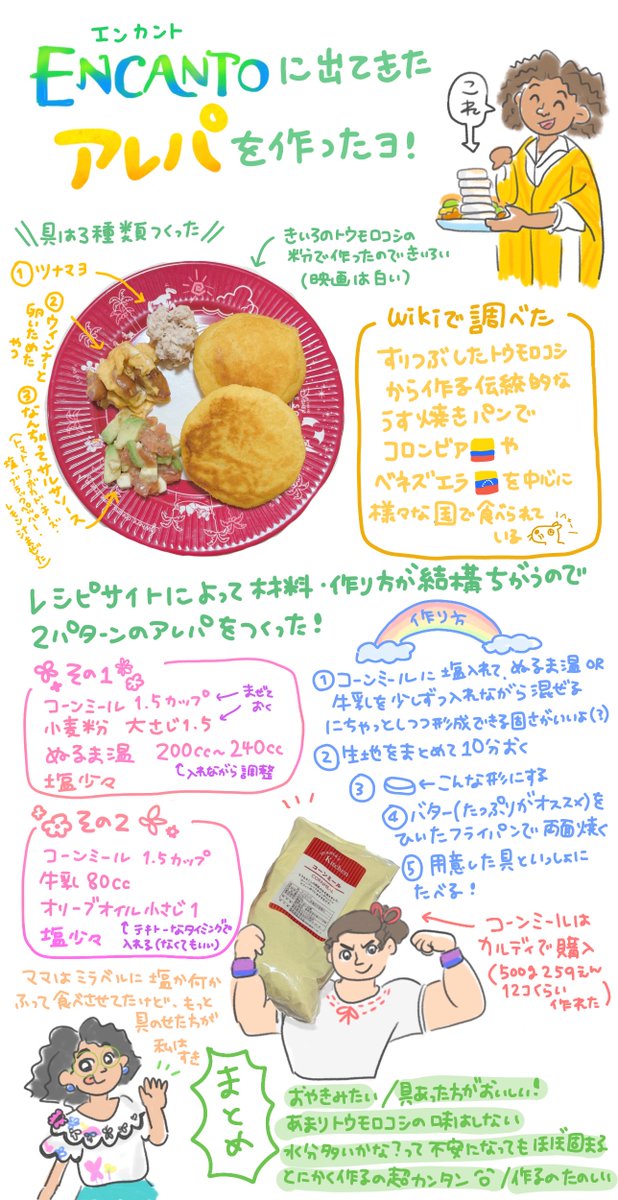 エンカント
ENCANTOに出てきた
アレパを作ったヨ!
これ
具は3種類つくった
①ツナマヨ
②ウィンナーと
卵いためた
やつ
③なんちゃってサルサソース
きいろのトウモロコシの
粉で作ったのできいろい
(映画は白い)
wikiで調べた
すりつぶしたトウモロコシ
から作る伝統的な
うす焼きパンで
コロンビアや
ベネズエラを中心に
様々な国で食べられて
いる
レシピサイトによって材料・作り方が結構ちがうので
2パターンのアレパをつくった!
その1
コーンミール 1.5カップ
小麦粉 大さじ1.5
まぜて
おく
ぬるま湯 200cc~240cc
塩少々
入れながら調整
その2
コーンミール 1.5カップ
牛乳 80cc
オリーブオイル小さじ1
塩少々
テキトーなタイミングで
入れる(なくてもいい)
作り方
①コーンミールに塩入れて、ぬるま湯OR
牛乳を少しずつ入れながら混ぜる
にちゃっとしつつ形成できる固さがいいよ(?)
②生地をまとめて10分おく
③←こんな形にする
④バター(たっぷりがオススメ)を
ひいたフライパンで両面焼く
⑤用意した具といっしょに
たべる!
Kitchen
コーンミール
CORNMEAL
コーンミールは
カルディで購入
(500g259えん
12コくらい
作れた)
ママはミラベルに塩か何か
ふって食べさせてたけど、もっと
具のせた方が
私は
すき
まとめ
おやきみたい/具あった方がおいしい!
あまりトウモロコシの味はしない
水分多いかな?って不安になってもほぼ固まる
とにかく作るの超カンタン/作るのたのしい